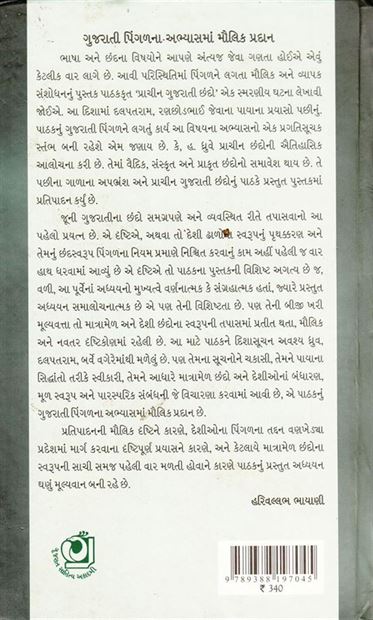 ગુજરાતી પિંગળના અભ્યાસમાં મૌલિક પ્રદાન
ભાષા અને છંદના વિષયોને આપણે અંત્યજ જેવા ગણતા હોઈએ એવું
કેટલીક વાર લાગે છે. આવી પરિસ્થિતિમાં પિંગળને લગતા મૌલિક અને વ્યાપક
સંશોધનનું પુસ્તક પાઠકકૃત ‘પ્રાચીન ગુજરાતી છંદો’ એક સ્મરણીય ઘટના લેખાવી
જોઈએ. આ દિશામાં દલપતરામ, રણછોડભાઈ જેવાના પાયાના પ્રયાસો પછીનું.
પાઠકનું ગુજરાતી પિંગળને લગતું કાર્ય આ વિષયના અભ્યાસનો એક પ્રગતિસૂચક
સ્તંભ બની રહેશે એમ જણાય છે. કે. હ. ધ્રુવે પ્રાચીન છંદોની ઐતિહાસિક
આલોચના કરી છે. તેમાં વૈદિક, સંસ્કૃત અને પ્રાકૃત છંદોનો સમાવેશ થાય છે. તે
પછીના ગાળાના અપભ્રંશ અને પ્રાચીન ગુજરાતી છંદોનું પાઠકે પ્રસ્તુત પુસ્તકમાં
પ્રતિપાદન કર્યું છે.
જૂની ગુજરાતીના છંદો સમગ્રપણે અને વ્યવસ્થિત રીતે તપાસવાનો આ
પહેલો પ્રયત્ન છે. એ દષ્ટિએ, અથવા તો દેશી ઢાળોના સ્વરૂપનું પૃથક્કરણ અને
તેમનું છંદસ્વરૂપ પિંગળના નિયમ પ્રમાણે નિશ્ચિત કરવાનું કામ અહીં પહેલી જ વાર
હાથ ધરવામાં આવ્યું છે એ દષ્ટિએ તો પાઠકના પુસ્તકની વિશિષ્ટ અગત્ય છે જ,
વળી, આ પૂર્વેનાં અધ્યયનો મુખ્યત્વે વર્ણનાત્મક કે સંગ્રહાત્મક હતાં, જ્યારે પ્રસ્તુત
અધ્યયન સમાલોચનાત્મક છે એ પણ તેની વિશિષ્ટતા છે. પણ તેની બીજી ખરી
મૂલ્યવત્તા તો માત્રામેળ અને દેશી છંદોના સ્વરૂપની તપાસમાં પ્રતીત થતા, મૌલિક
અને નવતર દષ્ટિકોણમાં રહેલી છે. આ માટે પાઠકને દિશાસૂચન અવશ્ય ધ્રુવ,
દલપતરામ, બર્વે વગેરેમાંથી મળેલું છે. પણ તેમના સૂચનોને ચકાસી, તેમને પાયાના
સિદ્ધાંતો તરીકે સ્વીકારી, તેમને આધારે માત્રામેળ છંદો અને દેશીઓનાં બંધારણ,
મૂળ સ્વરૂપ અને પારસ્પરિક સંબંધની જે વિચારણા કરવામાં આવી છે, એ પાઠકનું
ગુજરાતી પિંગળના અભ્યાસમાં મૌલિક પ્રદાન છે.
પ્રતિપાદનની મૌલિક દષ્ટિને કારણે, દેશીઓના પિંગળના તદ્દન વણખેડ્યા
પ્રદેશમાં માર્ગ કરવાના દષ્ટિપૂર્ણ પ્રયાસને કારણે, અને કેટલાયે માત્રામેળ છંદોના
સ્વરૂપની સાચી સમજ પહેલી વાર મળતી હોવાને કારણે પાઠકનું પ્રસ્તુત અધ્યયન
ઘણું મૂલ્યવાન બની રહે છે.
હરિવલ્લભ ભાયાણી
ગુજરાત સાહિત્ય અકાદમી
9 789388 197045
₹ 340